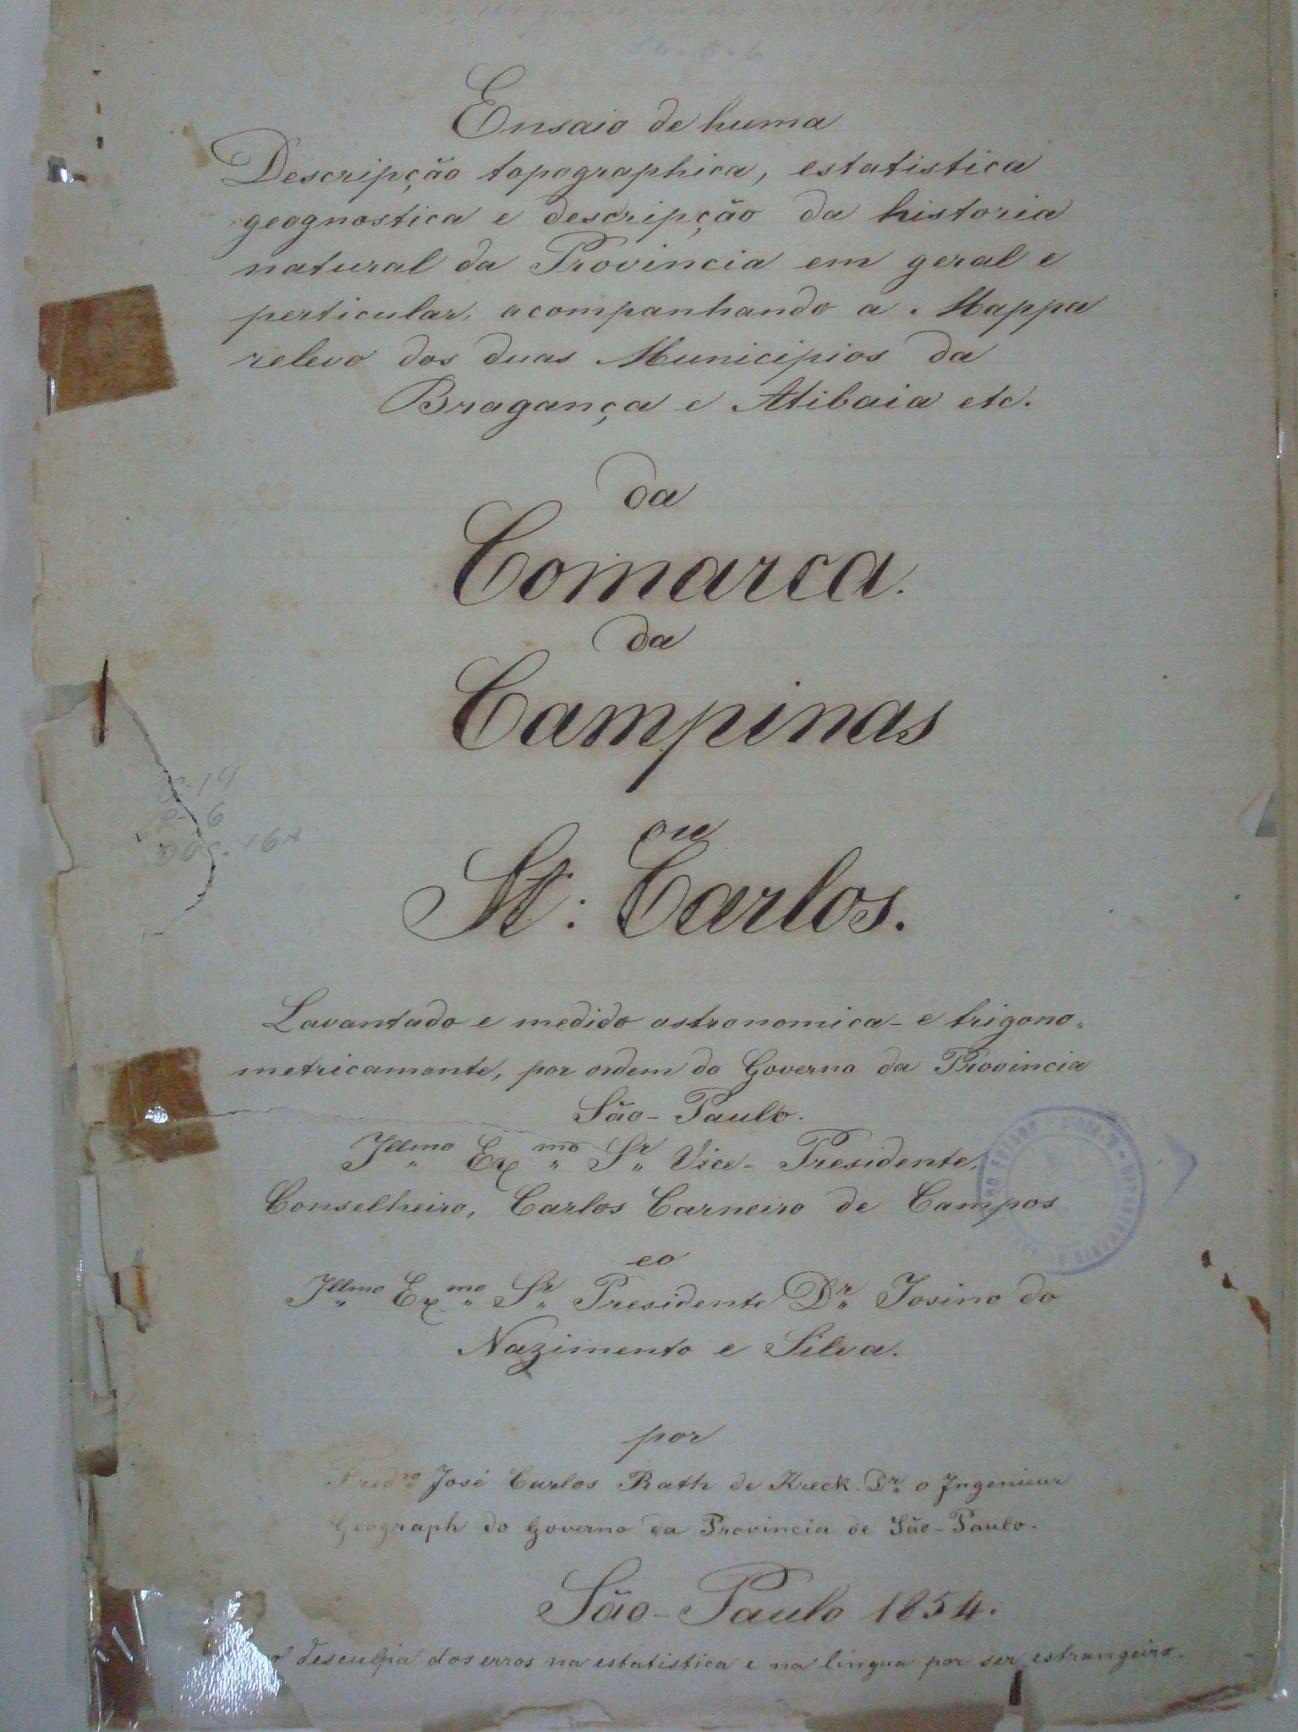 Ensaio de huma
Descripção topographica, estatistica
geognostica e descripção da historia
natural da Provincia em geral e
perticular, acompanhando a Mappa
relevo dos duas Municipios da
Bragança e Atibaia etc.
da
Comarca.
da
Campinas
ou
St: Carlos.
Lavantado e medido astronomica- e trigono-
metricamente, por ordem do Governo da Provincia
São-Paulo.
Illmo Exmo Sr Vice-Presidente,
Conselheiro, Carlos Carneiro de Campos
eo
Illmo Exmo Sr Presidente Dr Josino do
Nazimento e Silva.
por
Fredro José Carlos Rath de Kreck. Dr o Ingenieur
Geograph do Governo da Provincia de São-Paulo.
São-Paulo 1854.
desculpa dos erros na estatistica e na lingua por ser estrangeiro.